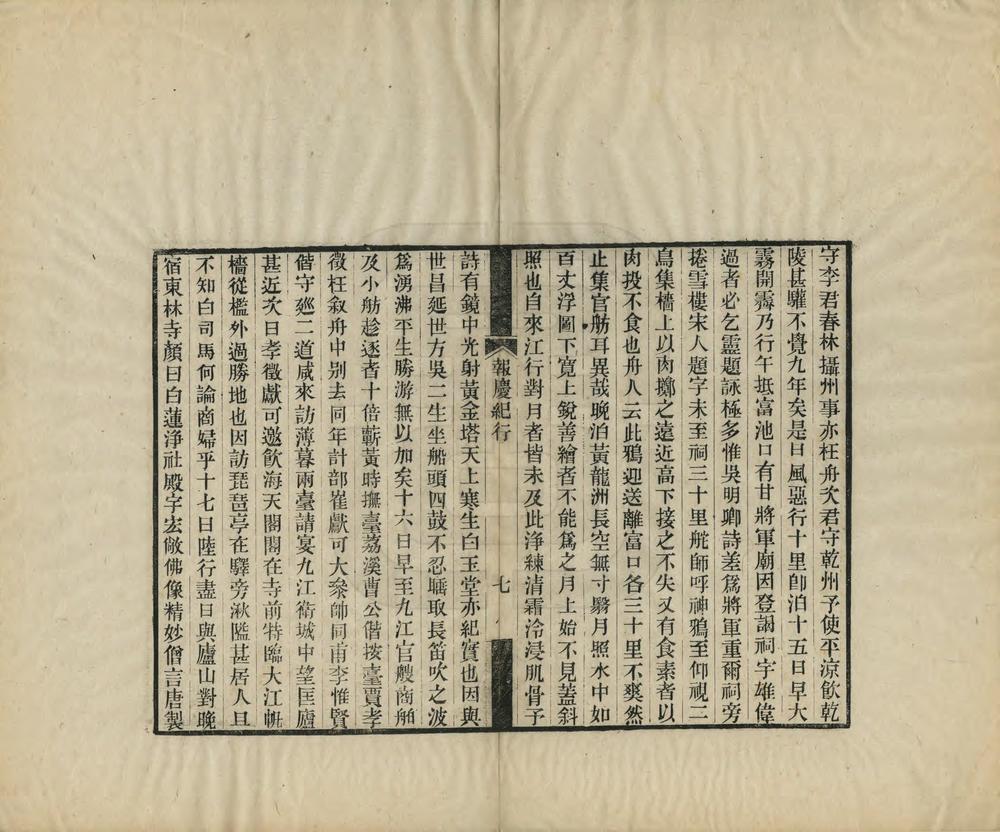 守李君春林攝州事亦枉舟次君守乾州予使平涼飲乾
陵甚驩不覺九年矣是日風惡行十里卽泊十五日早大
霧開霽乃行午抵富池口有甘將軍廟因登謁祠宇雄偉
過者必乞靈題詠極多惟吳明卿詩差爲將軍重爾祠旁
捲雪樓宋人題字未至祠三十里舵師呼神鴉至仰視二
鳥集檣上以肉擲之遠近高下接之不失又有食素者以
肉投不食也舟人云此鴉迎送離富口各三十里不爽然
止集官舫耳異哉晚泊黃龍洲長空無寸翳月照水中如
百丈浮圖下寬上銳善繪者不能爲之月上始不見蓋斜
照也自來江行對月者皆未及此淨練淸霜泠浸肌骨予
報慶紀行
七
詩有鏡中光射黃金塔天上寒生白玉堂亦紀實也因與
世昌延世方吳二生坐船頭四鼓不忍寢取長笛吹之波
爲湧沸平生勝游無以加矣十六日早至九江官艘商舶
及小舫趁逐者十倍蘄黃時撫臺荔溪曹公偕按臺賈孝
徵枉敘舟中別去同年計部崔獻可大叅帥同甫李惟賢
偕守廵二道咸來訪薄暮兩臺請宴九江衛城中望匡廬
甚近次日孝徵獻可邀飲海天閣閣在寺前特臨大江帆
檣從檻外過勝地也因訪琵琶亭在驛旁湫隘甚居人且
不知白司馬何論商婦乎十七日陸行盡日與廬山對晚
宿東林寺顏曰白蓮淨社殿宇宏敞佛像精妙僧言唐製